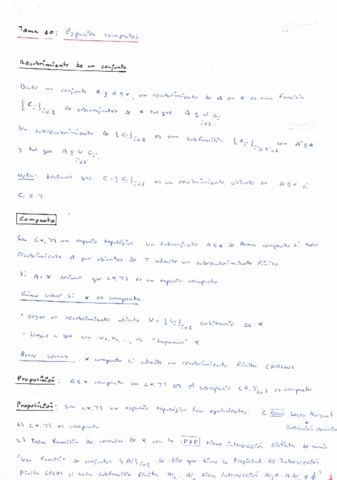 Tema 10: Espacios compactos
Recubrimiento de un conjunto
Dado un conjunto X y A⊆X, un recubrimiento de A en X es una familia
{Ci}i∈I de subconjuntos de X tal que A ⊆ ∪ Ci
i∈I
Un subrecubrimiento de {Ci}i∈I es una subfamilia {Ci}i∈I' con
y tal que A ⊆ ∪ Ci
Nota: Diremos que C={Ci}i∈I es un recubrimiento abierto en A⊆X si
Ci ∈ T.
Compacto
Sea (X,T) un espacio topológico. Un subconjunto A⊆X se llama compacto si todo
recubrimiento A por abiertos de T admite un subrecubrimiento finito
Si A=X diremos que (X,T) es un espacio compacto
Cómo saber si X es compacto
· Coger un recubrimiento abierto U={Ui}i∈I arbitrario de X
· Llegar a que U1, U2, ..., Un "tapan" X
X compacto si admite un recubrimiento finito
Proposición: A⊆X compacto en (X,T) el subespacio (A,T|A) es compacto
Proposición: Sea (X,T) un espacio topológico. Son equivalentes:
1) (X,T) es compacto
2) Toda familia de cerrados de X con la PIF tiene intersección distinta de vacío
Una familia de conjuntos {Ai}i∈I se dice que tiene la Propiedad de Intersección
Finita (PIF) si toda subfamilia finita tiene intersección ≠ ∅